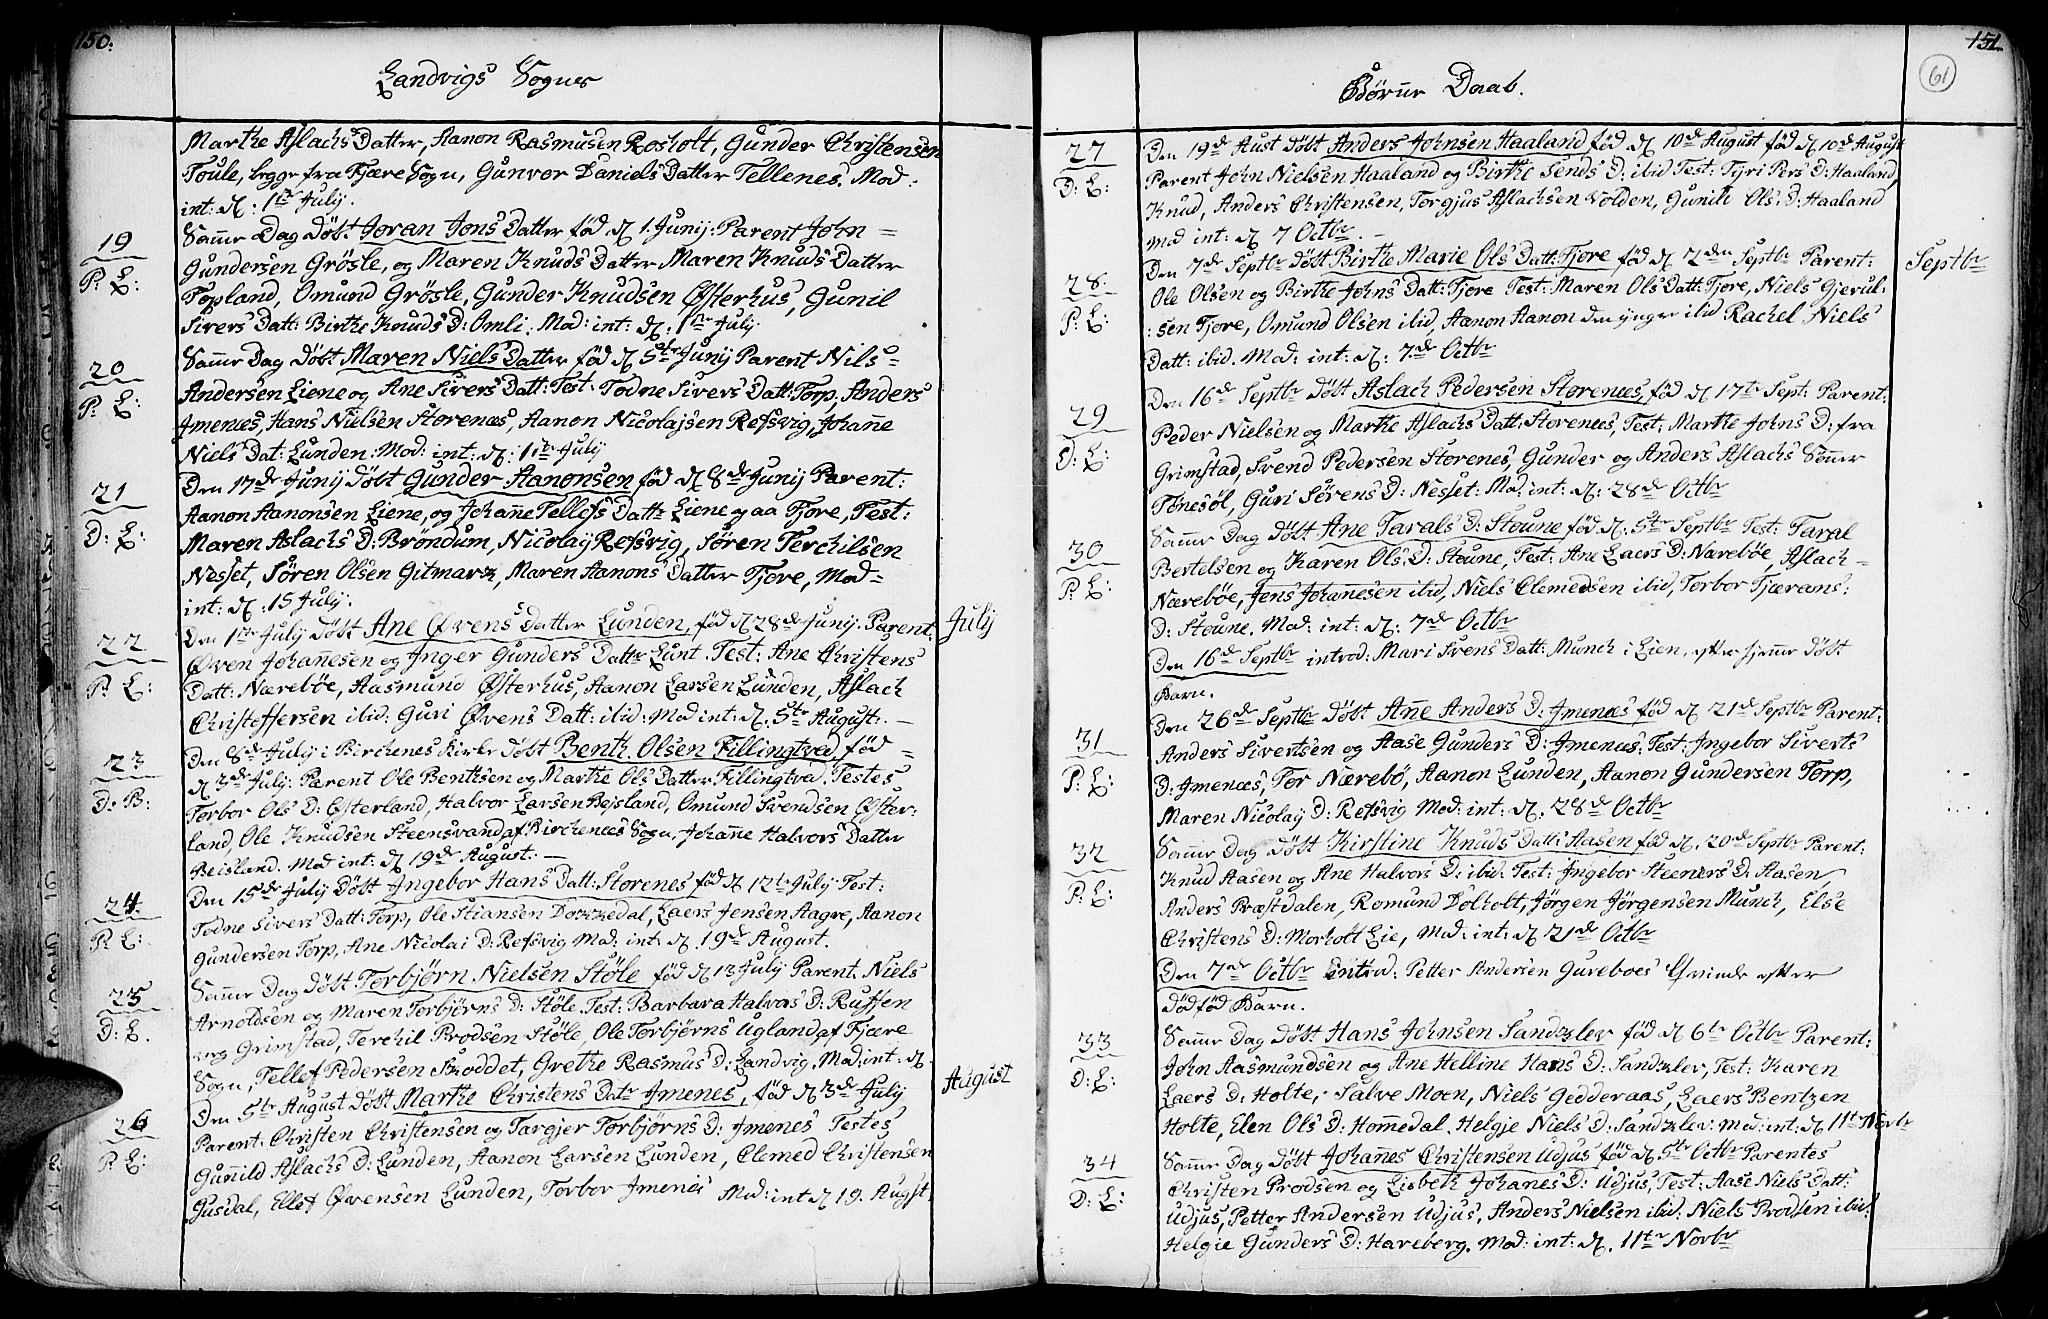 150.
Landvigs Sogns
Marthe Aslachs Datter, Aanon Rasmusen Rosholt, Gunder Christensen
Toule, begge fra Fjære Sogn, Gunvor Daniels Datter Tellenes. Mod:
int: d: 1ste July.
19
P: L:
Samme Dag døbt Joran Jons Datter fød d 1. Junij: Parent John
Gundersen Grøsle, og Maren Knuds Datter Maren Knuds Datter
Topland, Omund Grøsle, Gunder Knudsen Østerhus, Gunil
Sivers Datt: Birthe Knuds D: Omli. Mod: int: d: 1ste July.
20
P: L:
Samme Dag døbt Maren Niels Datter fød d 5te Junij Parent Nils
Andersen Liene og Ane Sivers Datt: Test: Todne Sivers Datt: Torp, Anders
Jmenæs, Hans Nielsen Storenæs, Aanon Nicolajsen Refsvig, Johanne
Niels Dat: Lunden: Mod: int: d: 1ste July
21
D: L:
Den 17de Junij døbt Gunder Aanonsen fød d 8de Junij Parent:
Aanon Aanonsen Liene, og Johanne Tellefs Datt Liene paa Fjøre, Test:
Maren Aslachs D: Brøndum, Nicolaij Refsvig, Søren Terchilsen
Nesset, Søren Olsen Gitmark, Maren Aanons Datter Fjøre, Mod
int: d: 15 July.
22
P: L:
Den 1ste July døbt Ane Øvens Datter Lunden, fød d 28de Junij. Parent
Øven Johannesen og Jnger Gunders Datter Lunt. Test: Ane Christens
Datt: Nærebøe, Aasmund Østerhus, Aanon Larsen Lunden, Aslach
Christoffersen ibid: Guri Øvens Datt: ibid: Mod int: d. 5te August.
July
23
D: B:
Den 8de July i Birchenes Kirke døbt Benth Olsen Fillingtved, fød
d 3de July: Parent Ole Benthsen og Marthe Ols Datter Fillingtved. Testes
Torbor Ols D: Østerland, Halvor Larsen Beisland, Omund Svendsen Øster-
land, Ole Knudsen Steensvand af Birchenæs Sogn, Johanne Halvors Datter
Beisland. Mod int: d 19de August.
24
P: L:
Den 15de July døbt Jngebor Hans Datt: Storenes fød d 12te July Test:
Todne Sivers Datt: Torp, Ole Stiansen Dokkedal, Laers Jensen Aagre, Aanon
Gundersen Torp, Ane Nicolai D: Refsvig Mod: int: d. 19de August.
25
D: L.
Samme Dag døbt Torbjørn Nielsen Støle fød d 13 July Parent. Niels
Arnoldsen og Maren Torbjørns D: Støle. Test: Barbara Halvors D: Ruffen
Grimstad, Terchil Brodsen Støle, Ole Torbjørns Ugland af Fjære
Sogn, Tellef Pedersen Skoddet, Grethe Rasmus D: Landvig. Mod: int: d.
26
P: L:
Den 5te August døbt Marthe Christens Datr Jmenes, fød d 3de July
Parent: Christen Christensen og Targjer Torbjørns D: Jmenes Testes
Gunnild Aslachs D: Lunden, Aanon Larsen Lunden, Clemed Christensen
Gusdal, Ellef Øvensen Lunden, Torbor Jmenes Mod: int d 19. Augst
August
151.
61
Børne Daab.
27
D: L:
Den 19de Aust døbt Anders Johnsen Haaland fød d 10de August fød d 10de August
Parent John Nielsen Haaland og Birthe Sends D: ibid Test: Tyri Pers D: Haaland,
Knud, Anders Christensen, Torgjus Aslachsen Volden, Gunild Ols D: Haaland
Mod int: d 7 Octbr.
28.
P: L:
Den 7de Septbr døbt Birthe Marie Ols Datt: Fjøre fød d 2den Septbr Parent:
Ole Olsen og Birthe Johns Datt: Fjøre Test: Maren Ols Datt: Fjøre, Niels Gjerul-
sen Fjøre, Omund Olsen ibid, Aanon Aanon den ynger ibid Rachel Niels
Datt: ibid. Mod: int: d: 7de Octbr
Septbr
29
D: L:
Den 16de Septbr døbt Aslach Pedersen Storenæs, fød d 17te Sept: Parent:
Peder Nielsen og Marthe Aslachs Datt: Storenæs, Test: Marthe Johns D: fra
Grimstad, Svend Pedersen Storenes, Gunder og Anders Aslachs Sønner
Tønesøl, Guri Sørens D: Nesset: Mod: int: d: 28de Octbr
30
P: L:
Samme Dag døbt Ane Tarals D: Stoune fød d: 5te Septbr Test: Taral
Bertelsen og Karen Ols D: Stoune, Test: Ane Laers D: Nærebøe, Aslach
Nærebøe, Jens Johannesen ibid, Niels Clemedsen ibid, Torbor Tjærans
D: Stoune. Mod: int: d: 7de Octbr
Den 16de Septbr introd: Mari Svens Datt: Munch i Lien, efter hjemme døbt
Barn.
31
P: L:
Den 26de Septbr døbt Anne Anders D: Jmenæs fød d 21de Septbr Parent:
Anders Sivertsen og Aase Gunders D: Jmenæs: Test: Jngebor Siverts
D: Jmenæs, Tor Nærebø, Aanon Lunden, Aanon Gundersen Torp,
Maren Nicolaij D: Refsvig Mod: int: d. 28de Octbr
32
P: L:
Samme Dag døbt Kirstine Knuds Datt: Aasen fød d. 20de Septbr Parent:
Knud Aasen og Ane Halvors D: ibid. Test: Jngebor Steeners D: Aasen,
Anders Præstdalen, Romund Dølholt, Jørgen Jørgensen Munch, Else
Christens D: Morholt Lie, Mod: int: d 21de Octbr
Den 7de Octbr introd: Petter Andersen Gureboes Qvinde efter
dødfød Barn.
33
D: L:
Samme Dag døbt Hans Johnsen Sandklev fød d 6te Octbr Parent:
John Aasmundsen og Ane Helline Hans D: Sandklev, Test: Karen
Laers D: Holte, Salve Moen, Niels Gedderaas, Laers Bentzen
Holte, Elen Ols D: Hommedal. Helgje Niels D: Sandklev: Mod: int: d 11te Novbr
34
D: L:
Samme Dag døbt Johannes Christensen Udjus fød d 5te Octbr Parentes
Christen Brodsen og Lisbeth Johanes D: Udjus, Test: Aase Niels Datt:
Udjus, Petter Andersen Udjus, Anders Nielsen ibid: Niels Brodsen ibid.
Helgie Gunders D: Hareberg. Mod: int: d. 11te Novbr